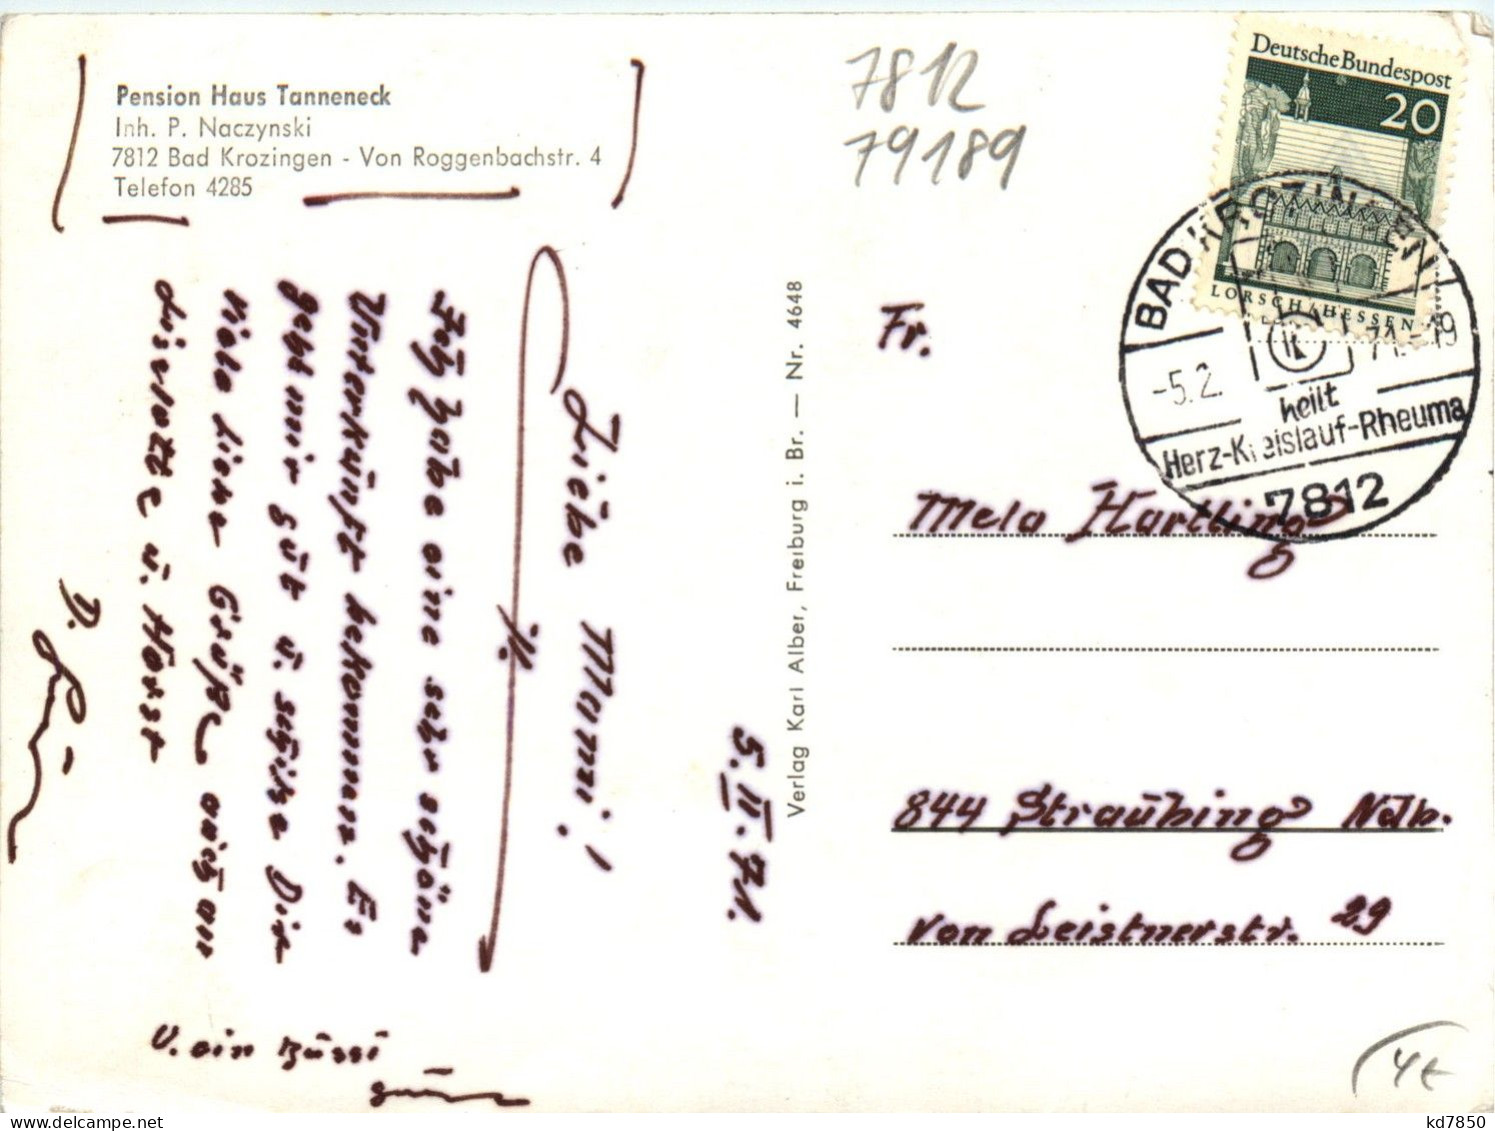 Pension Haus Tanneneck
Inh. P. Naczynski
7812 Bad Krozingen - Von Roggenbachstr. 4
Telefon 4285
7812
79189
Deutsche Bundespost
20
LORSCH/HESSEN
BAD KROZINGEN
-5.2. 71-19
K
heilt
Herz-Kreislauf-Rheuma
7812
5.II.71.
Liebe Mami!
Ich habe eine sehr schöne
Unterkunft bekommen. Es
geht mir gut u. schicke Dir
viele liebe Grüße auch an
Liselotte u. Horst
D.
u. ein Bussi
Verlag Karl Alber, Freiburg i. Br. — Nr. 4648
Fr.
Mela Hartling
844 Straubing Ndb.
Von Leistnerstr. 29
4€
kd7850